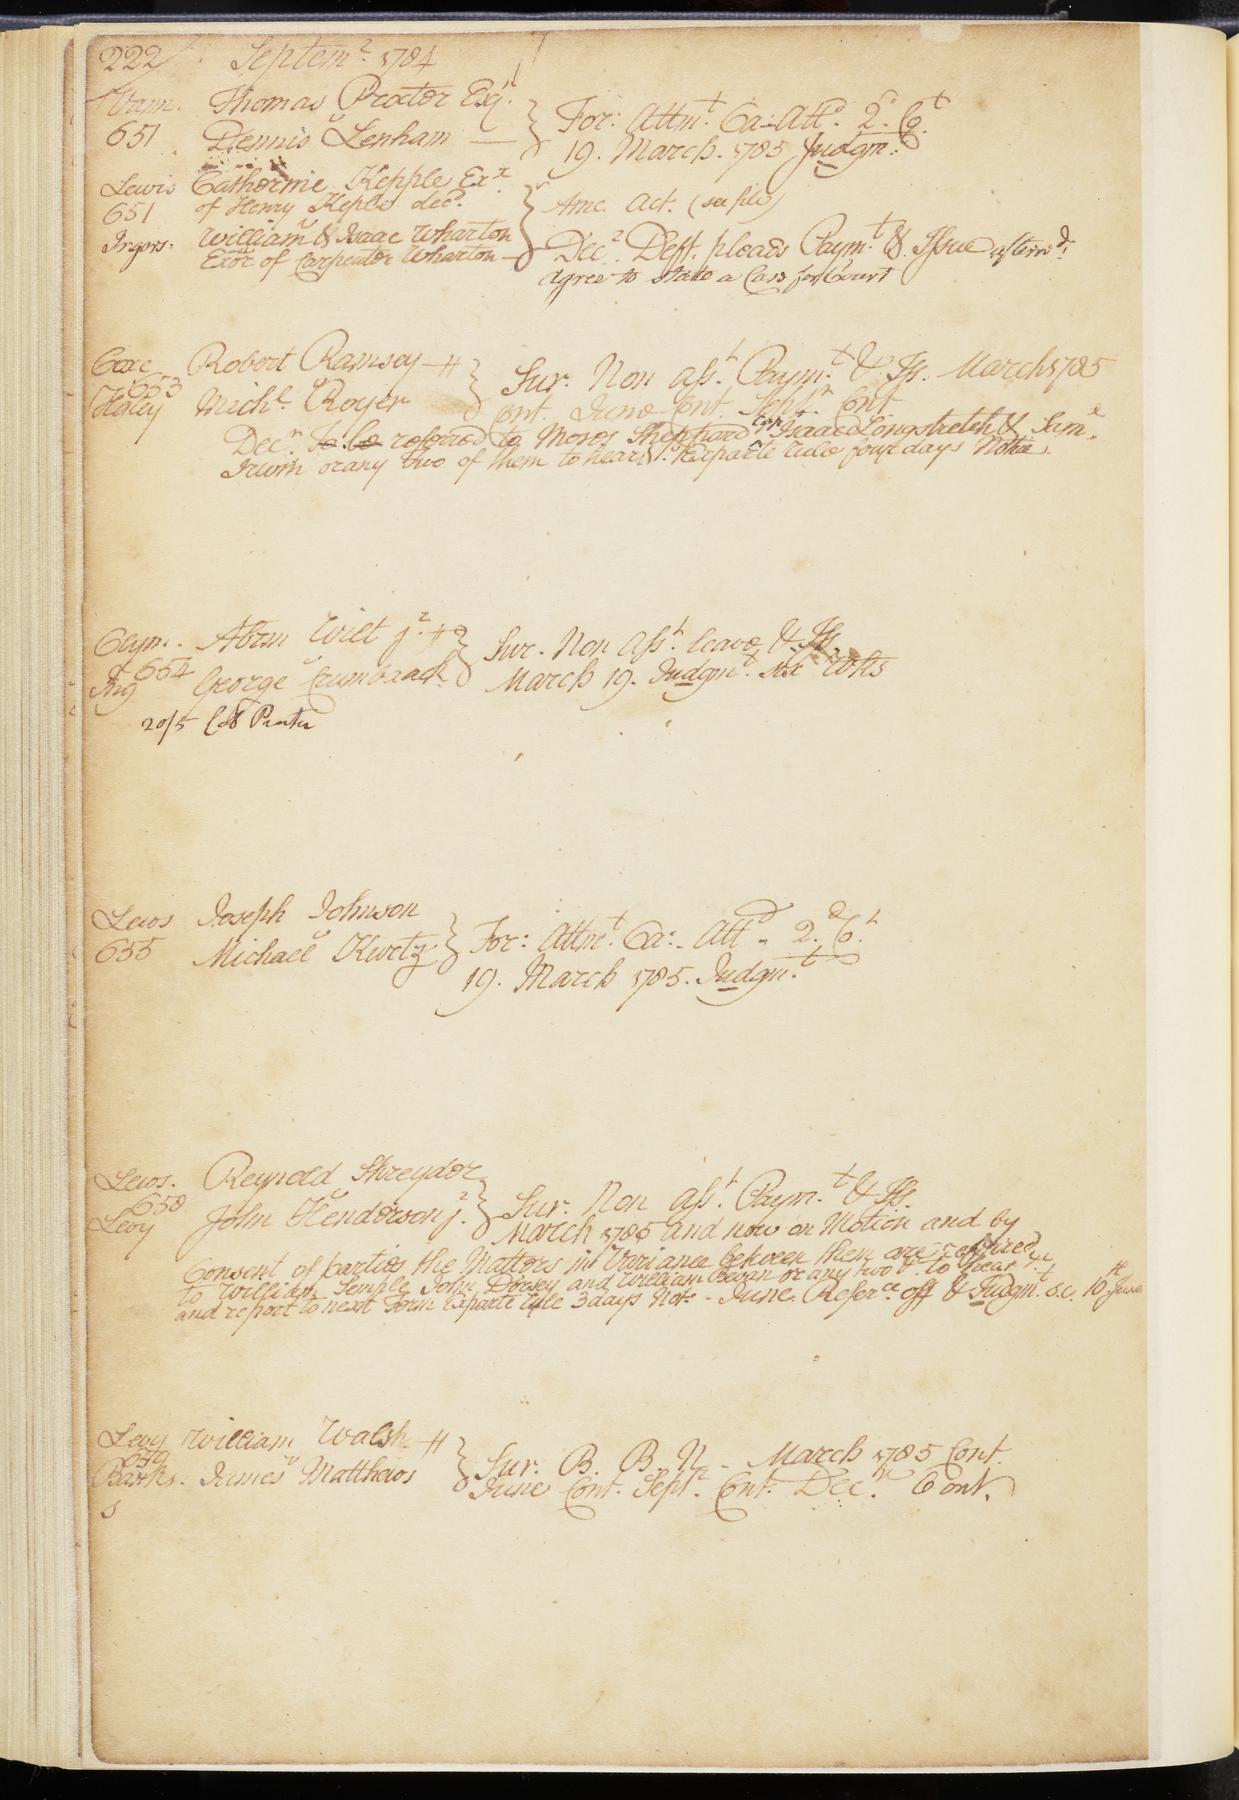 222 Septemr 1784
Vann. Thomas Proctor Esqr
651 v Dennis Lenham
For: Attmt. Ca: Attd. 2d Ct
19. March. 1785 Judgmt.
Lewis Catherine Kepple Exx
651 of Henry Keple decd.
v
Ingers: William & Isaac Wharton
Exor of Carpenter Wharton
Amc. Act. (see file)
Decr. Deft. pleads Paymt. & Issue afterwds.
agree to state a Case for Court
Coxe Robert Ramsey
653 v
Haley Michl. Royer
Sur. Non Asst. Paymt. & Iss. March 1785
Cont. June Cont. Septr. Cont
Decr. referred to Moses Sheppard Capn Isaac Longstreth & Saml.
Irwin or any two of them to hear &c. Exparte rule four days Notice.
Clym. Abrm Wilt jr.
654 v
Ing George Crumbaack
Sur. Non Asst. leave & Iss.
March 19. Judgmt. six Wks
20/5 Col Proctor
Lewis Joseph Johnson
655 v Michael Kurtz
For: Attmt. Ca: Attd. 2d. Ct.
19. March 1785. Judgmt.
Lews. Reynold Shreyder
658 v
Levy John Henderson jr.
Sur. Non Asst. Paymt. & Iss.
March 1785 and now on Motion and by
Consent of parties the Matters in Variance between them are referred
to William Semple John Dorsey and William Bevan or any two &c. to hear &c
and report to next Term Exparte rule 3 days Note - June. Referce off & Judgmt. s.c. 10th June
Levy William Walsh
659 v
Banks. James Matthews
Sur. B. B. N. - March 1785 Cont.
June Cont. Septr. Cont. Decr. Cont.
s